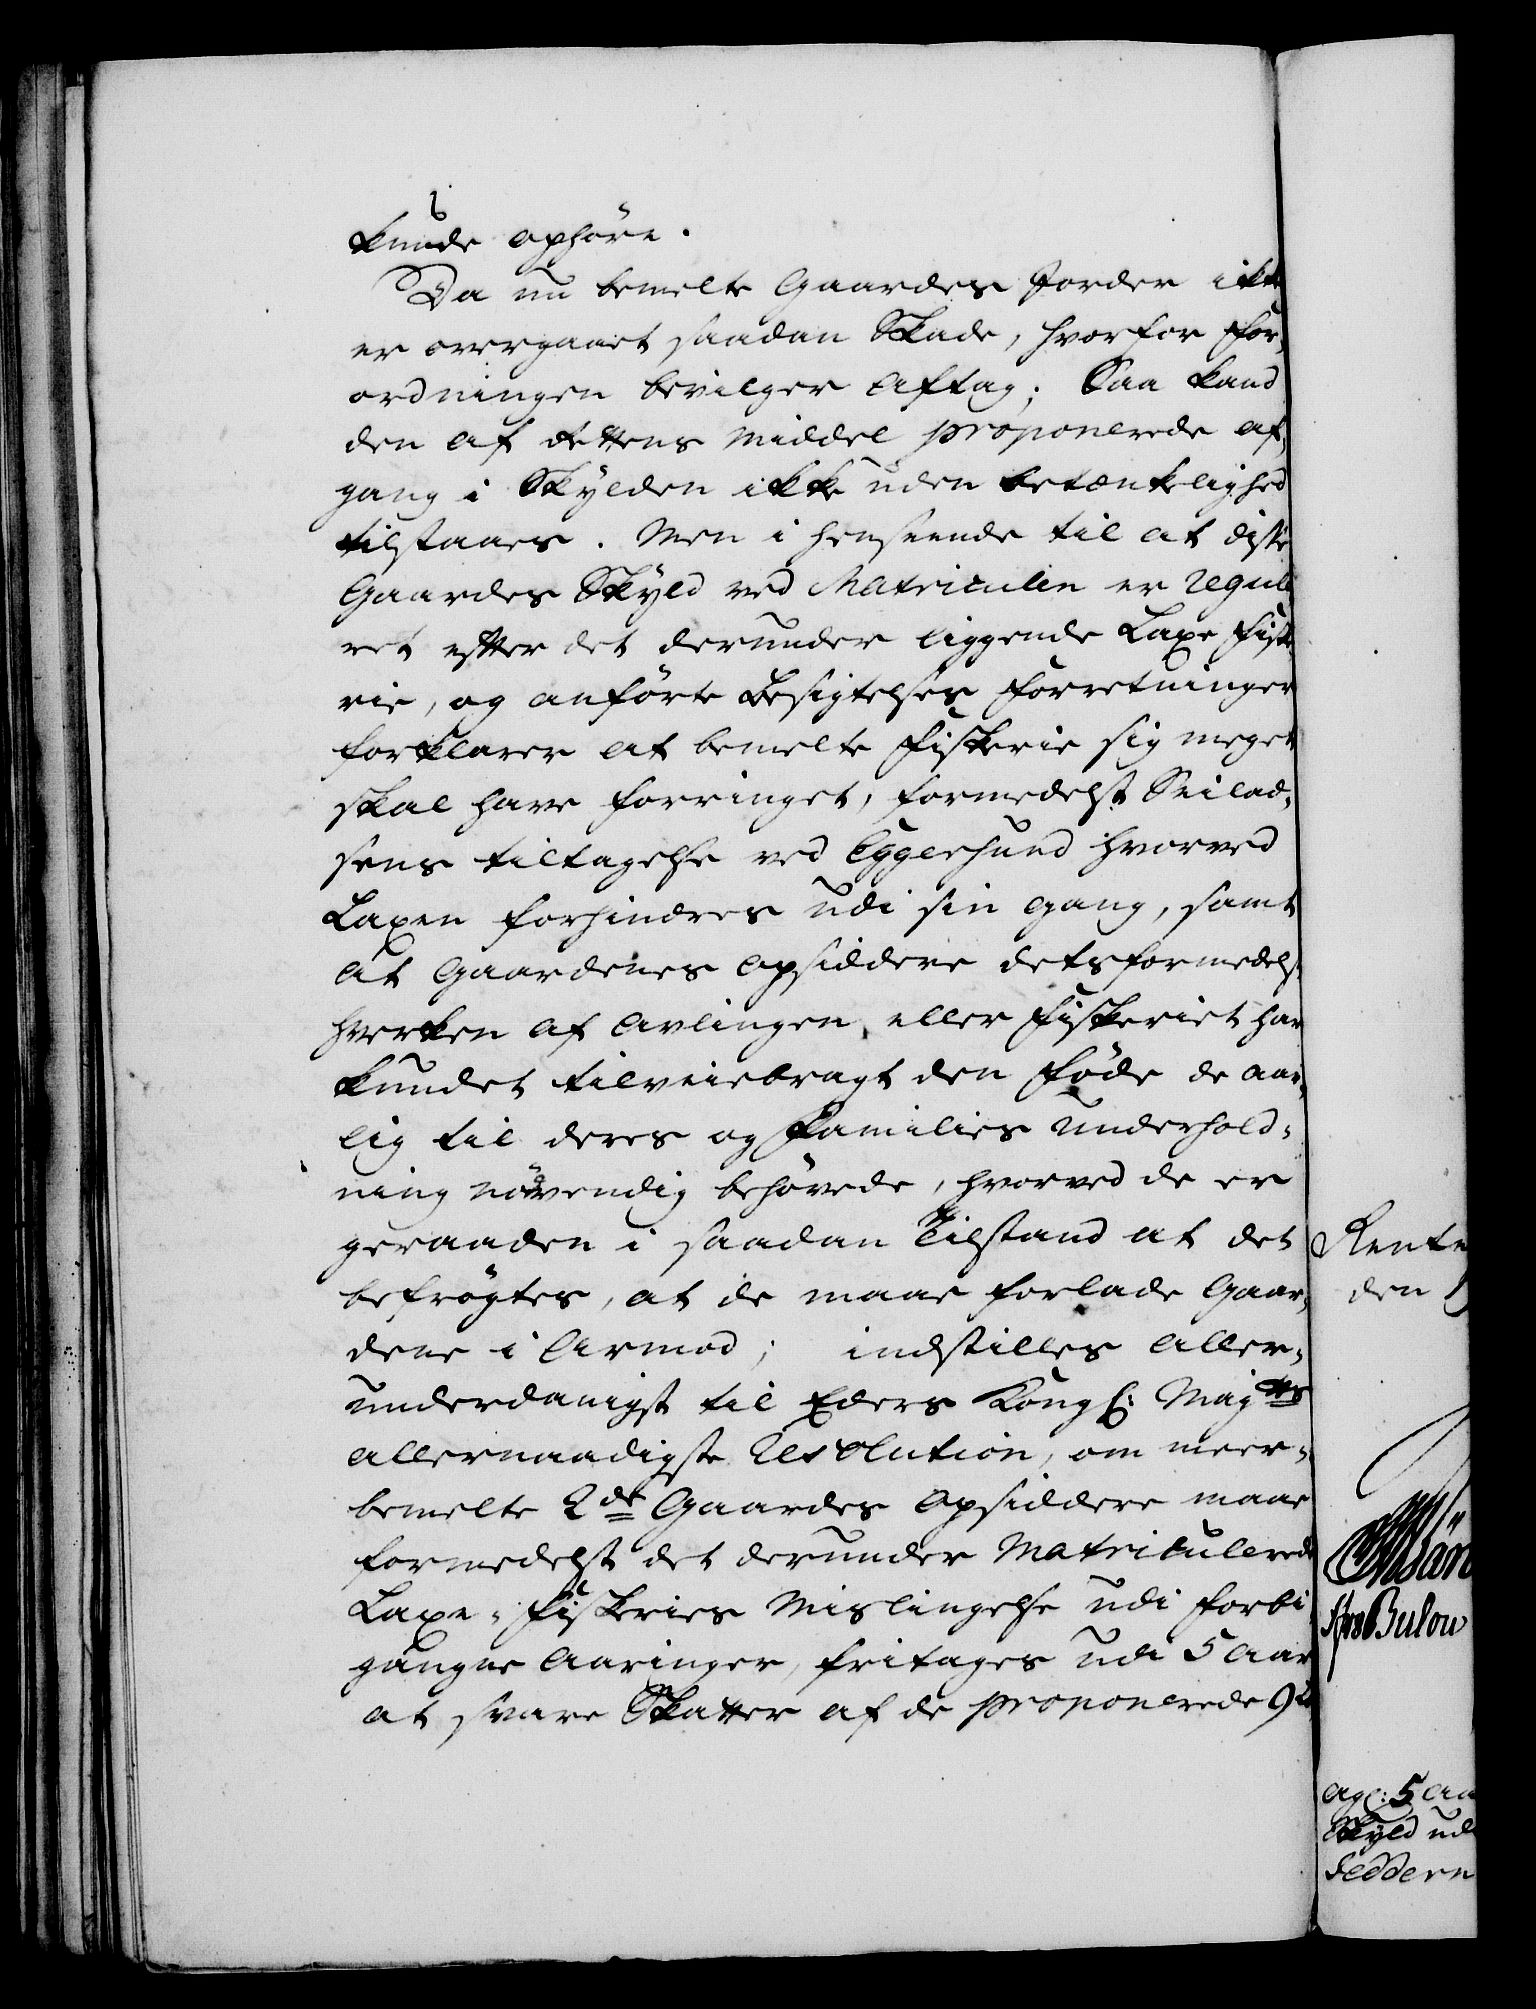 kunde ophöre.
Da nu bemelte Gaardes Jorder ikke
er overgaaet saadan Skade, hvorfor For,
ordningen bevilger Aftag; Saa kand
den af Rettens Middel proponerede af,
gang i Skylden ikke uden betænkelighed
tilstaaes. Men i henseende til at disse
Gaardes Skyld ved Matriculen er Regule
ret efter det derunder liggende Laxe Fiske
rie, og anförte Besigtelses Forretninger
forklarer at bemelte Fiskerie sig meget
skal have forringet, formedelst Seilad,
sens tiltagelse ved Eggersund hvorved
Laxen forhindres udi sin gang, samt
at Gaardenes Opsiddere detsformedelst
hverken af Avlingen eller Fiskeriet har
kundet tilveiebragt den Föde de aar,
lig til deres og Families underhold,
ning nödvendig behövede, hvorved de er
geraaden i saadan Tilstand at det
befrögtes, at de maae forlade Gaar,
dene i Armod; indstilles Aller,
underdanigst til Eders Kongl: Mayts
allernaadigste Resolution, om meer,
bemelte 2de Gaardes Opsiddere maae
formedelst det derunder Matriculerede
Laxe, Fiskeries Mislingelse udi forbi
gangne Aaringer, fritages udi 5 Aar
at svare Skatter af de proponerede
Rente
den
Bulow
5 Aa
Skyld udi
Feddern